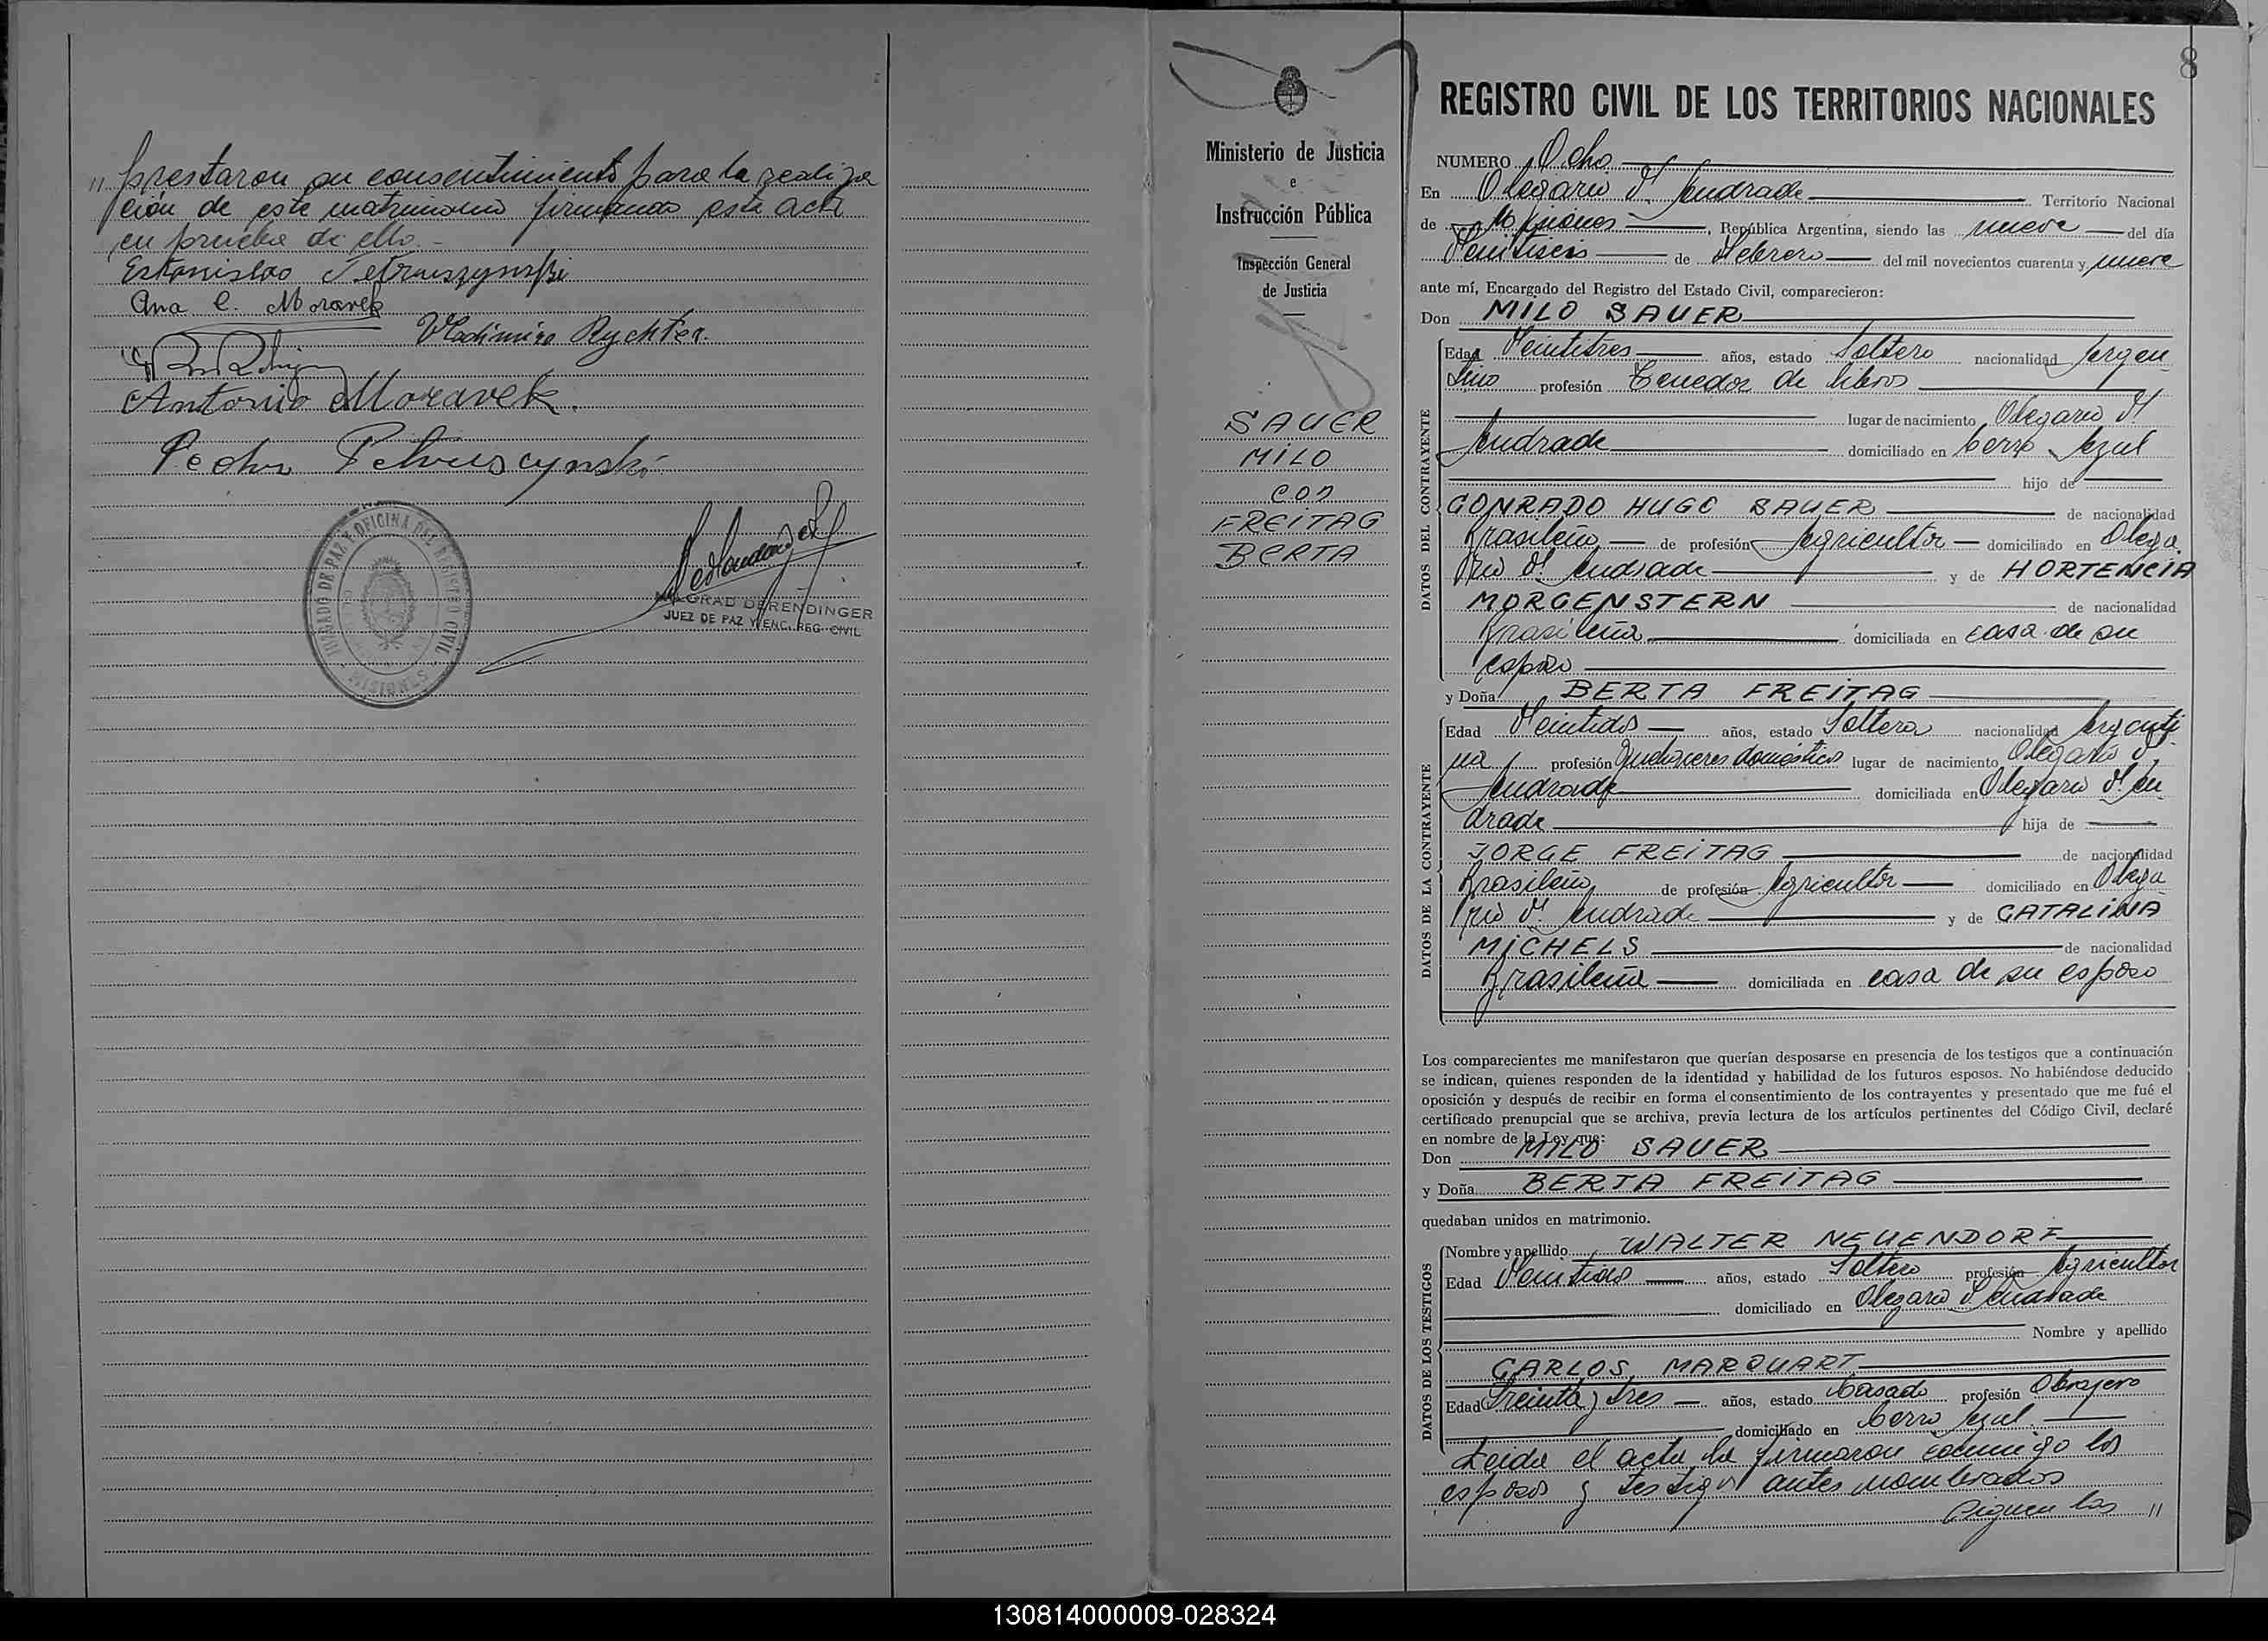 " prestaron su consentimiento para la realiza
ción de este matrimonio firmando esta acta
en prueba de ello.-
Estanislao Petruszynski
Ana C. Moravek
Vladimiro Rychter.
Antonio Moravek.
Pedro Petruscynski
JUZGADO DE PAZ Y OFICINA DEL REGISTRO CIVIL
- MISIONES -
DERENDINGER
JUEZ DE PAZ Y ENC. REG. CIVIL
Ministerio de Justicia
e
Instrucción Pública
Inspección General
de Justicia
SAUER
MILO
CON
FREITAG
BERTA
8
REGISTRO CIVIL DE LOS TERRITORIOS NACIONALES
NUMERO Ocho
En Olegario V. Andrade Territorio Nacional
de Misiones, República Argentina, siendo las nueve del día
Veintiseis de Febrero del mil novecientos cuarenta y nueve
ante mí, Encargado del Registro del Estado Civil, comparecieron:
Don MILO SAUER
DATOS DEL CONTRAYENTE
Edad Veintitres años, estado Soltero nacionalidad Argen
tino profesión Tenedor de libros
lugar de nacimiento Olegario V.
Andrade domiciliado en Cerro Azul
hijo de
CONRADO HUGO SAUER de nacionalidad
Brasileño de profesión Agricultor domiciliado en Olega
rio V. Andrade y de HORTENCIA
MORGENSTERN de nacionalidad
Brasileña domiciliada en casa de su
esposo
y Doña BERTA FREITAG
DATOS DE LA CONTRAYENTE
Edad Veintidos años, estado Soltera nacionalidad Argenti
na profesión Quehaceres domésticos lugar de nacimiento Olegario V.
Andrade domiciliada en Olegario V. An
drade hija de
JORGE FREITAG de nacionalidad
Brasileño de profesión Agricultor domiciliado en Olega
rio V. Andrade y de CATALINA
MICHELS de nacionalidad
Brasileña domiciliada en casa de su esposo
Los comparecientes me manifestaron que querían desposarse en presencia de los testigos que a continuación
se indican, quienes responden de la identidad y habilidad de los futuros esposos. No habiéndose deducido
oposición y después de recibir en forma el consentimiento de los contrayentes y presentado que me fué el
certificado prenupcial que se archiva, previa lectura de los artículos pertinentes del Código Civil, declaré
en nombre de la Ley que:
Don MILO SAUER
y Doña BERTA FREITAG
quedaban unidos en matrimonio.
DATOS DE LOS TESTIGOS
Nombre y apellido WALTER NEUENDORF
Edad Veintidos años, estado Soltero profesión Agricultor
domiciliado en Olegario V Andrade
Nombre y apellido
CARLOS MARQUART
Edad Treinta y tres años, estado Casado profesión Obrajero
domiciliado en Cerro Azul.
Leida el acta la firmaron conmigo los
esposos y testigos antes nombrados
Siguen las "
130814000009-028324